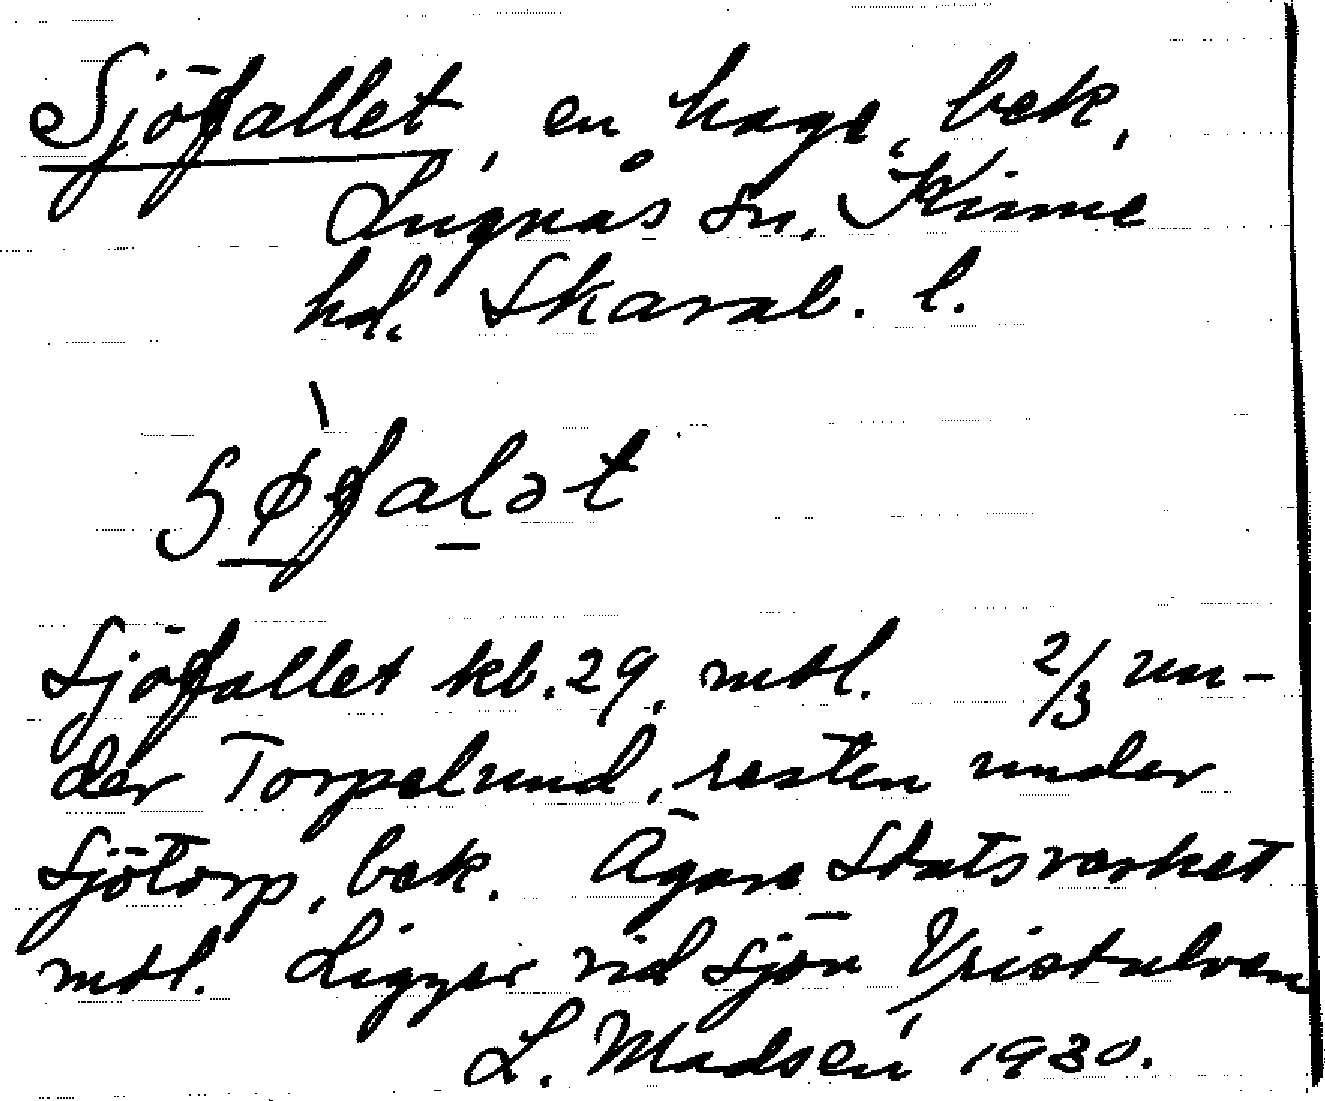 Sjöfallet, en hage, bek,
Lugnås sn. Kinne
hd. Skarab. l.
Sjöfallet kb. 29, mtl. 2/3 un-
der Torpelund, resten under
Sjötorp, bek. Ägare Statsverket
mtl. Ligger vid sjön Vristulven
L. Madsén 1930.